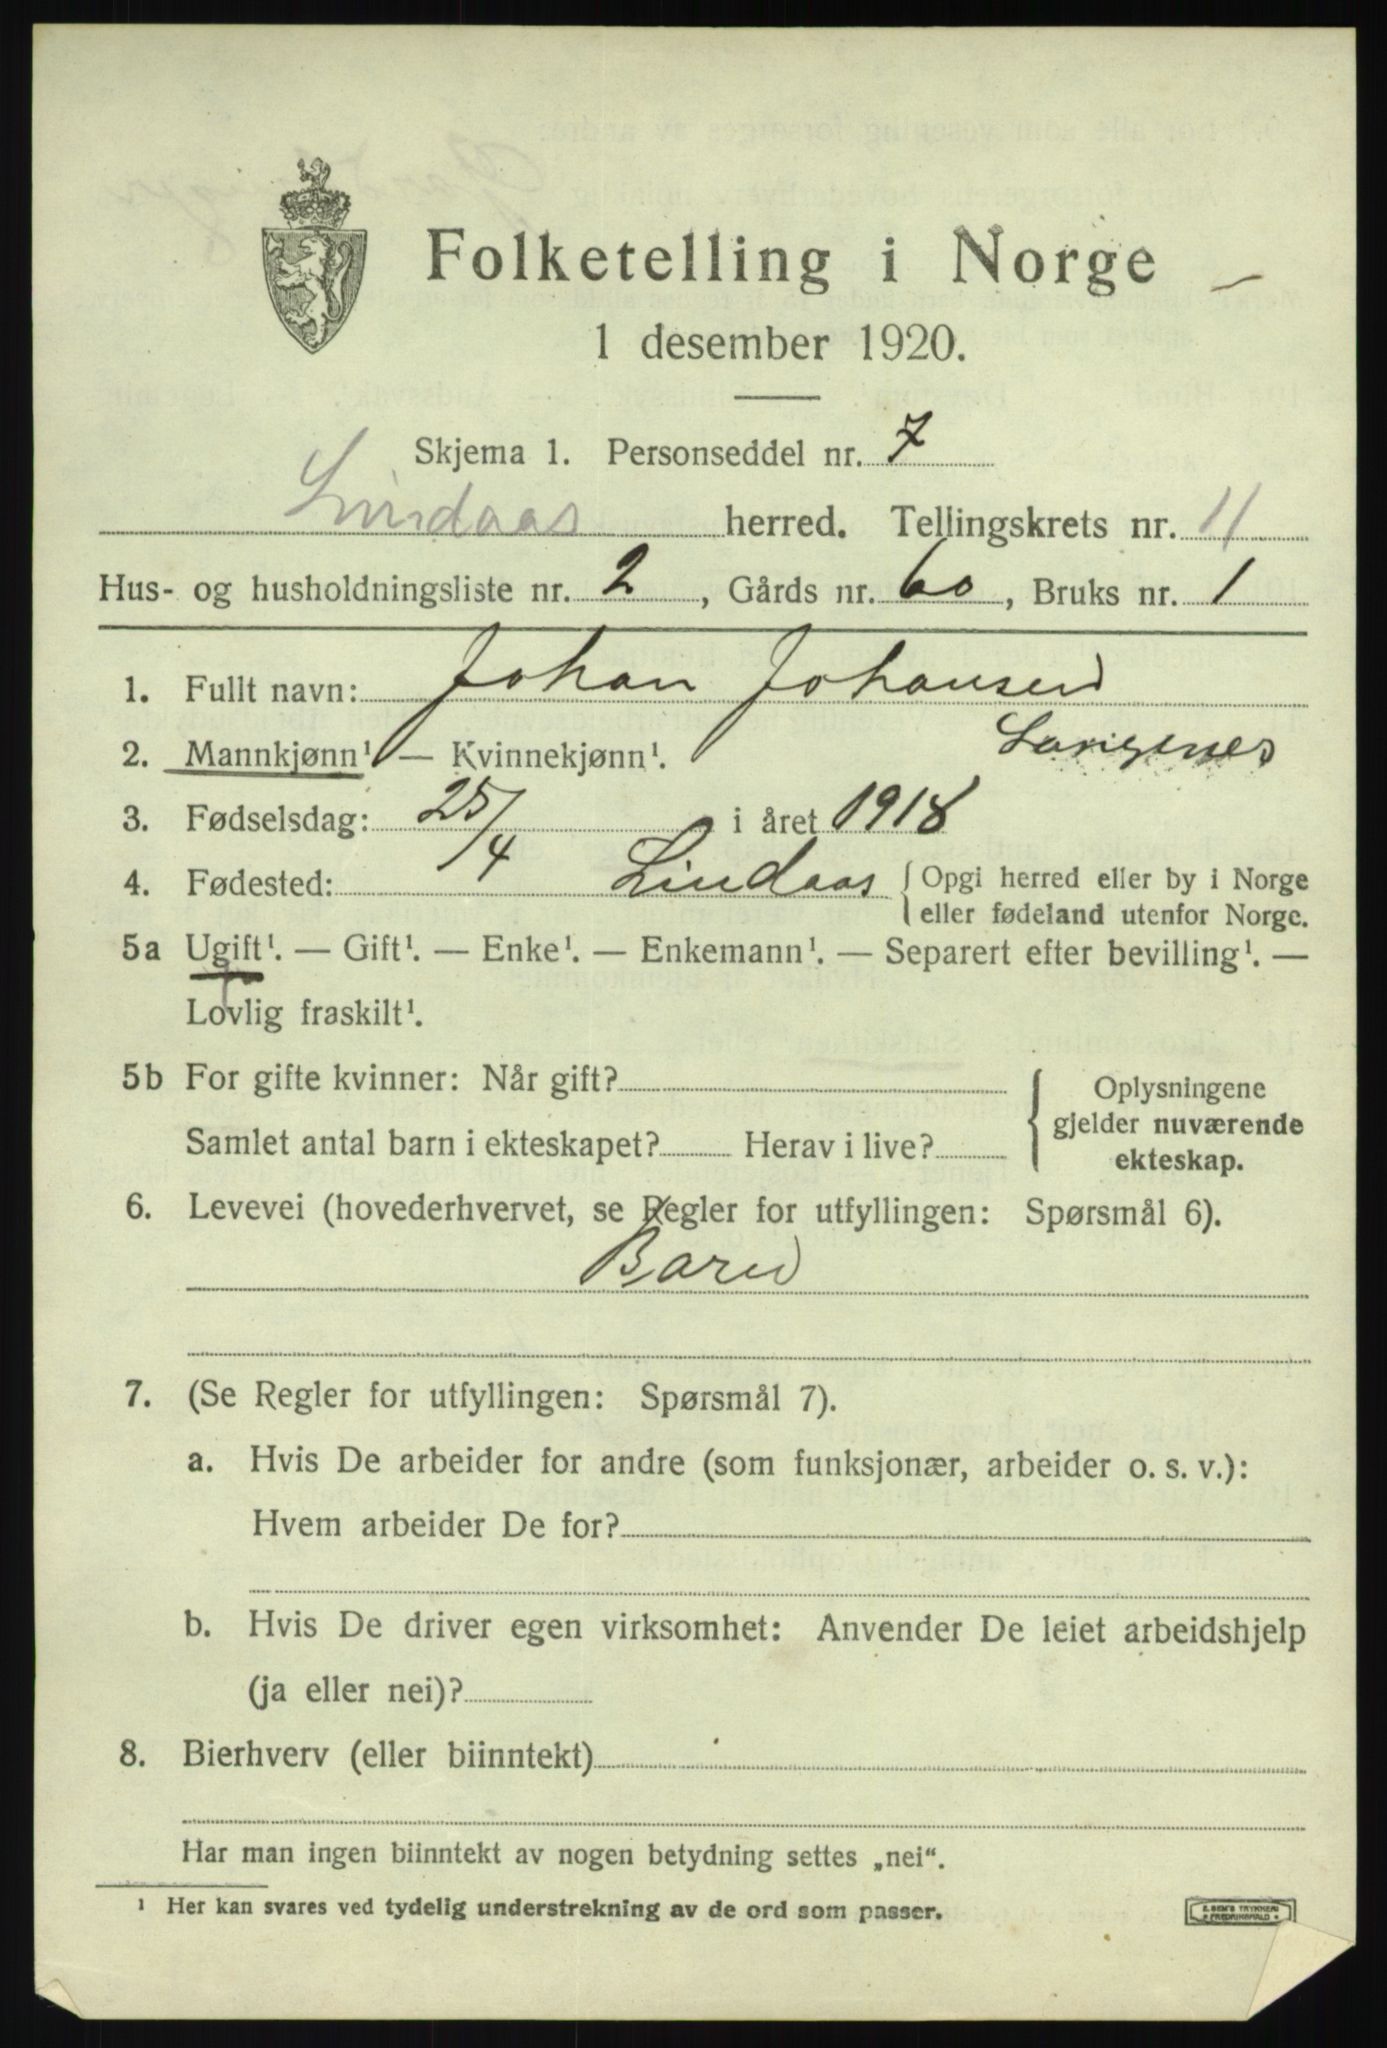 Folketelling i Norge
1 desember 1920.
Skjema 1. Personseddel nr. 7
Lindaas herred. Tellingskrets nr. 11
Hus- og husholdningsliste nr. 2, Gårds nr. 60, Bruks nr. 1
1. Fullt navn: Johan Johansen
Langenes
2. Mannkjønn¹ — Kvinnekjønn¹.
3. Fødselsdag: 25/4 i året 1918
4. Fødested: Lindaas { Opgi herred eller by i Norge
eller fødeland utenfor Norge.
5a Ugift¹. — Gift¹. — Enke¹. — Enkemann¹. — Separert efter bevilling¹. —
Lovlig fraskilt¹.
5b For gifte kvinner: Når gift?
Samlet antal barn i ekteskapet? Herav i live?
{ Oplysningene
gjelder nuværende
ekteskap.
6. Levevei (hovederhvervet, se Regler for utfyllingen: Spørsmål 6).
Barn
7. (Se Regler for utfyllingen: Spørsmål 7).
a. Hvis De arbeider for andre (som funksjonær, arbeider o. s. v.):
Hvem arbeider De for?
b. Hvis De driver egen virksomhet: Anvender De leiet arbeidshjelp
(ja eller nei)?
8. Bierhverv (eller biinntekt)
Har man ingen biinntekt av nogen betydning settes „nei“.
¹ Her kan svares ved tydelig understrekning av de ord som passer.